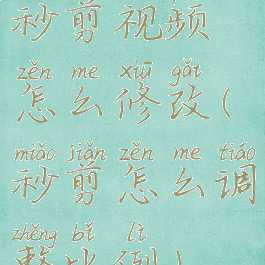 秒剪视频
zěn me xiū gǎi
怎么修改(
miǎo jiǎn zěn me tiáo
秒剪怎么调
zhěng bǐ lì
整比例)